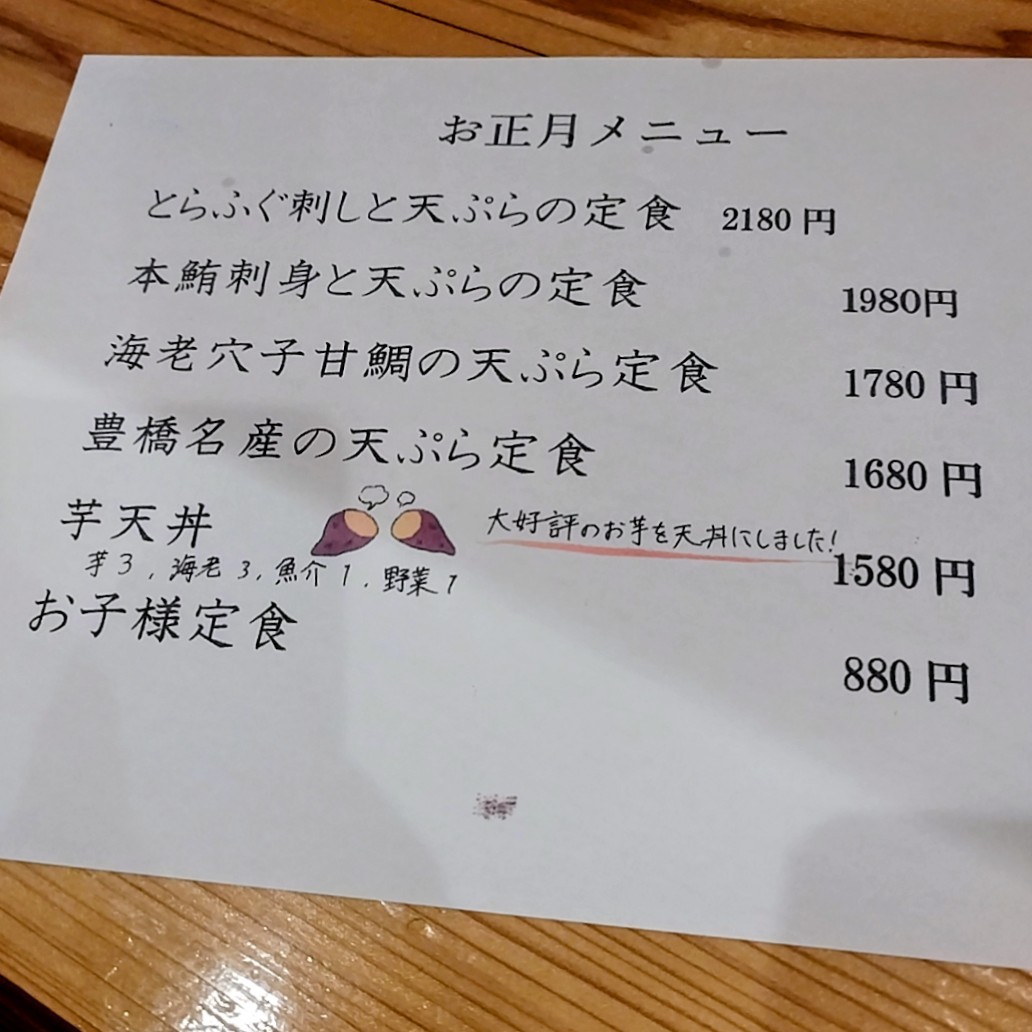 お正月メニュー
とらふぐ刺しと天ぷらの定食 2180 円
本鮪刺身と天ぷらの定食 1980円
海老穴子甘鯛の天ぷら定食 1780 円
豊橋名産の天ぷら定食 1680 円
芋天丼 大好評のお芋を天丼にしました! 1580 円
芋3, 海老3, 魚介1, 野菜1
お子様定食 880 円